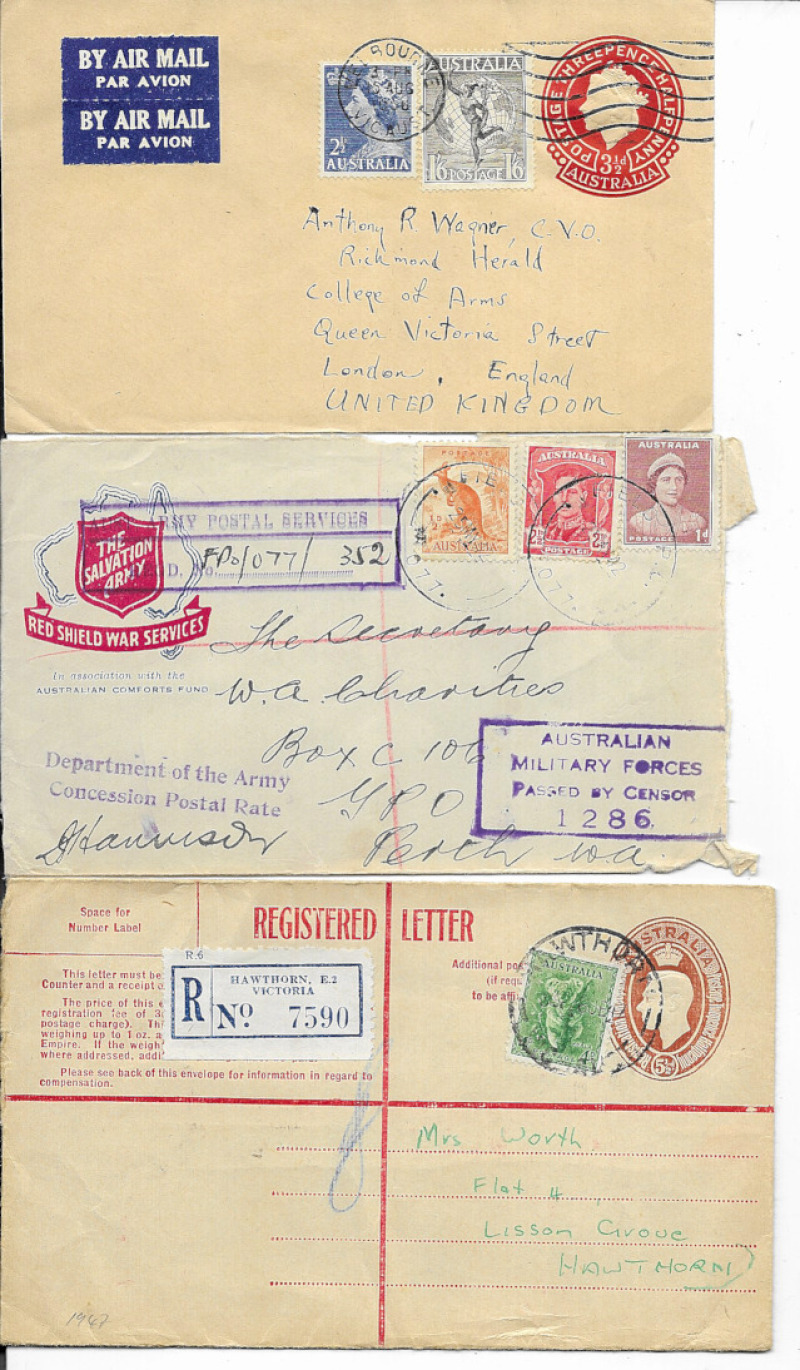 BY AIR MAIL
PAR AVION
BY AIR MAIL
PAR AVION
BOURNE
AUG
2½
AUSTRALIA
AUSTRALIA
1/6 POSTAGE 1/6
POSTAGE THREEPENCE HALFPENNY
3½d
AUSTRALIA
Anthony R. Wagner, C.V.O.
Richmond Herald
College of Arms
Queen Victoria Street
London, England
UNITED KINGDOM
ARMY POSTAL SERVICES
No. FPO/077/ 352
THE
SALVATION
ARMY
RED SHIELD WAR SERVICES
In association with the
AUSTRALIAN COMFORTS FUND
POSTAGE
AUSTRALIA
AUSTRALIA
2½
POSTAGE
AUSTRALIA
POSTAGE 1d
The Secretary
W.A. Charities
Box C 106
GPO
Perth W.A.
Department of the Army
Concession Postal Rate
AUSTRALIAN
MILITARY FORCES
PASSED BY CENSOR
1286.
Space for
Number Label
REGISTERED LETTER
R.6
R
HAWTHORN, E.2
VICTORIA
No 7590
This letter must be
Counter and a receipt
The price of this e
registration fee of 3
postage charge). Th
weighing up to 1 oz.
Empire. If the weigh
where addressed, addi
Please see back of this envelope for information in regard to
compensation.
Additional pos
(if requ
to be affi
AUSTRALIA
WTHOR
AUSTRALIA
5½
Mrs Worth
Flat 4,
Lisson Grove
HAWTHORN
1947